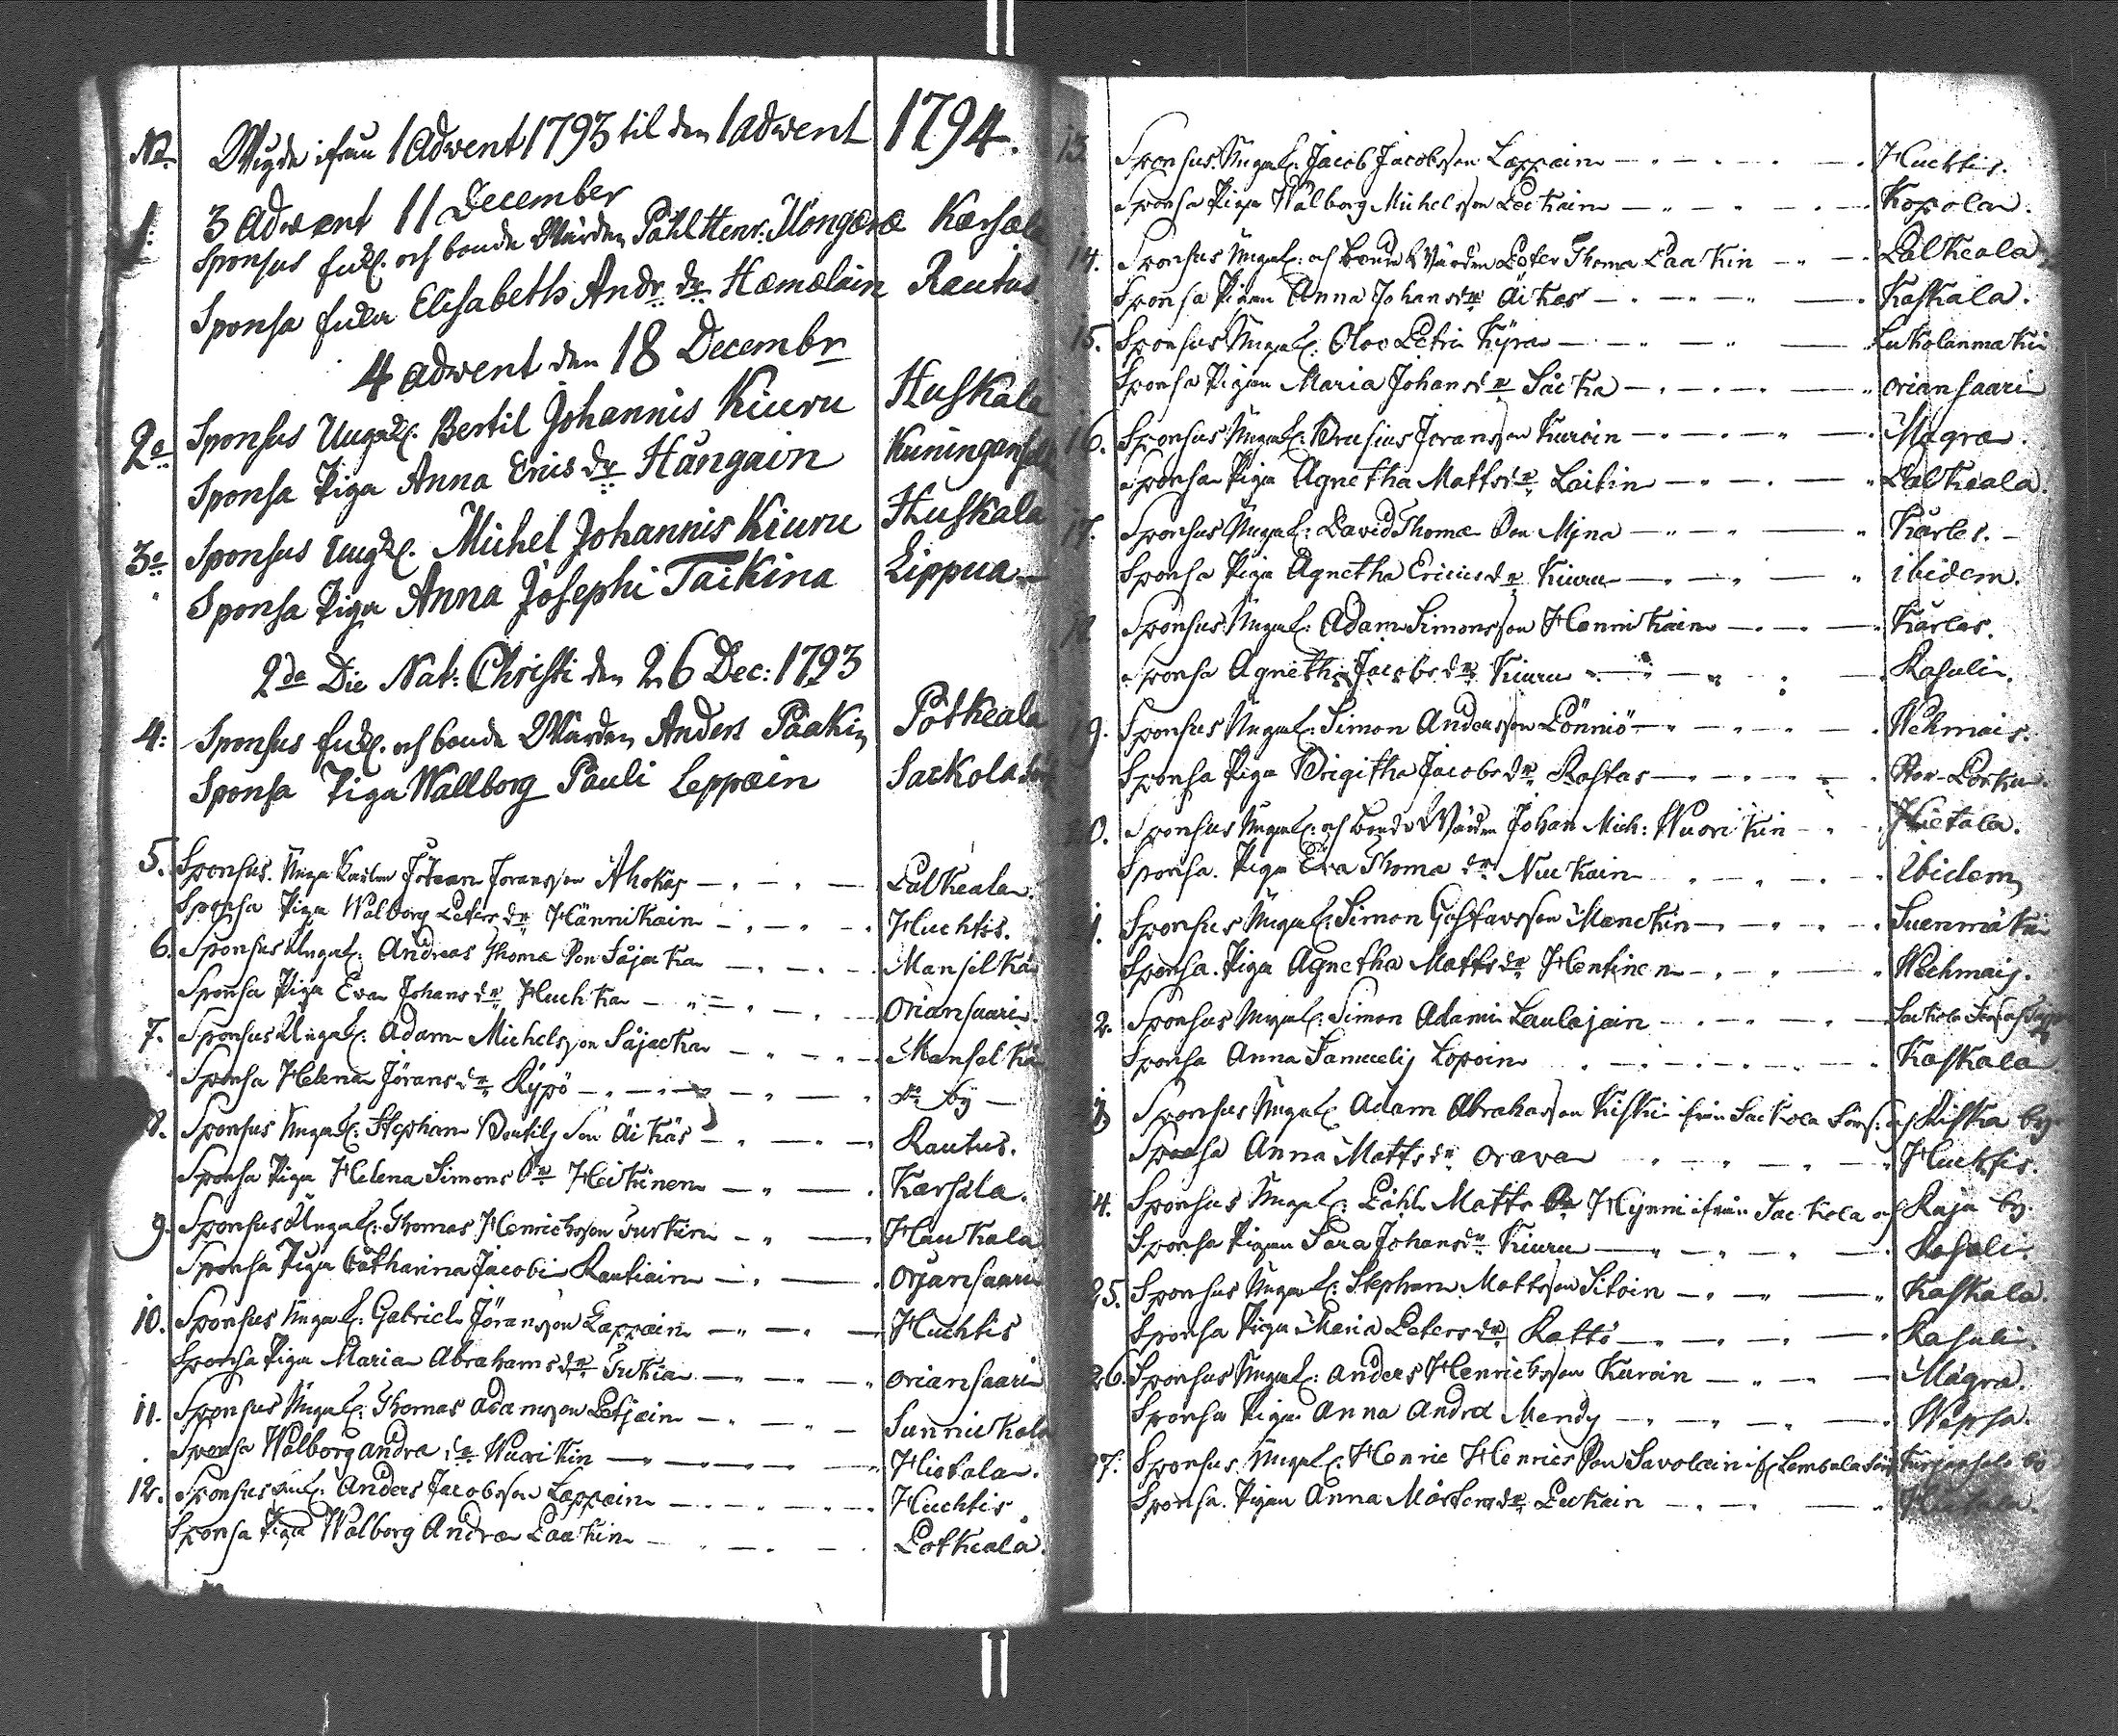 No. Wigde ifrån 1 Advent 1793 til den 1 advent 1794.
3 Advent 11 December
1. Sponsus Enkl. och bonde Wärden Påhl Henr: Kongæræ Karsala
Sponsa Enkan Elisabeth Andr. dr Hæmælain Rautus
4 advent den 18 Decembr
2o Sponsus Ungkl. Bertil Johannis Kiuru Huskala
Sponsa Piga Anna Erics dr Hångain
3o Sponsus Ungkl. Michel Johannis Kiuru Huskala
Sponsa Piga Anna Josephi Taikina Lippua
2da Die Nat: Christi den 26 Dec: 1793
4: Sponsus Enkl. och bonde Wärden Anders Pååkin Potkeala
Sponsa Piga Wallborg Påuli Leppæin Sackola
5. Sponsus. Unga Karlen Jöran Joransson Ahokas Palkeala
Sponsa Piga Walborg Peters dr Hännikain Huchtis.
6. Sponsus Ungkl: Andreas Thomæ Son Såjacka Manselkä
Sponsa Piga Eva Johans dr Huchka Oriansaari.
7. Sponsus Ungkl: Adam Michelsson Såjacka Manselkä
Sponsa Helena Jörans dr Rypö do by
8. Sponsus Ungkl: Stephan Bertils Son Äikäs Rautus.
Sponsa Piga Helena Simons dr Heikinen Karsala.
9. Sponsus Ungkl: Thomas Henricksson Turkin Haukala
Sponsa Piga Catharina Jacobi Rautiain Orjansaari
10. Sponsus Ungkl: Gabriel Jöransson Lappain Huchtis
Sponsa Piga Maria Abrahams dr Tukia Oriansaari
11. Sponsus Ungkl: Thomas Adamsson Petjain Sunnickala
Sponsa Walborg Andra dr Wuorikin Hietala.
12. Sponsus Enkl: Anders Jacobsson Lappain Huchtis
Sponsa Piga Walborg Andræ Paakin Potkeala.
13 Sponsus. Ungkl: Jacob Jacobsson Lappain Huchtis.
Sponsa Piga Walborg Michelsson Leckain Kopola.
14. Sponsus Ungkl: och bonde Wärden Peter Thomæ Paakin Palkeala
Sponsa Pigan Anna Johansdr Äikas Kaskala.
15. Sponsus Ungkl: Oloe Petri Kyræ Lukolanmäki
Sponsa Pigan Maria Johansdr Säcka oriansaari
16. Sponsus Ungkl: Brusius Joransson Kuroin Magræ.
Sponsa Piga Agnetha Mattsdr Laitin Palkeala.
17. Sponsus Ungkl: David Thomæ Son Myna Karles.
Sponsa Piga Agnetha Ericusdr Kiuru ibidem.
Sponsus Ungkl: Adam Simonsson Hennikain Karlas.
Sponsa Agnetha Jacobs dr Kiuru Rasuli.
19. Sponsus Ungkl: Simon Andersson Pönniö Wehmais.
Sponsa Piga Brigitha Jacobs dr Rastas Stor-Porku.
20. Sponsus Ungkl: och bonde Wärden Johan Mich: Wuorikin Hietala.
Sponsa. Piga Eva Thomæ dr Nuckain Ibidem
Sponsus Ungkl: Simon Gustavsson Manckin Suenmäki
Sponsa. Piga Agnetha Matts dr Hentinen Wechmais.
2. Sponsus Ungkl: Simon Adami Laulajain
Sponsa Anna Samuelis Lopoin Kaskala
Sponsus Ungkl: Adam Abrahasson Kiski ifrån Sackola Sons: och Riska by.
Sponsa Anna Matts dr Orava Huchtis.
4. Sponsus Ungkl: Påhl Matts Son Hynni ifrån Sackola och Raja by.
Sponsa Pigan Sara Johansdr Kiuru Rasuli.
25. Sponsus Ungkl: Stephan Mattsson Siloin Kaskala.
Sponsa Piga Maria Peters dr Rättö Rasuli.
26. Sponsus Ungkl: Anders Henricksson Kuroin Mågra.
Sponsa Piga Anna Andræ Mendy Wepsa.
27. Sponsus. Ungkl: Henric Henrics Son Savolain if Lembala
Sponsa. Pigan Anna Mårtens dr Luckain Hietala.